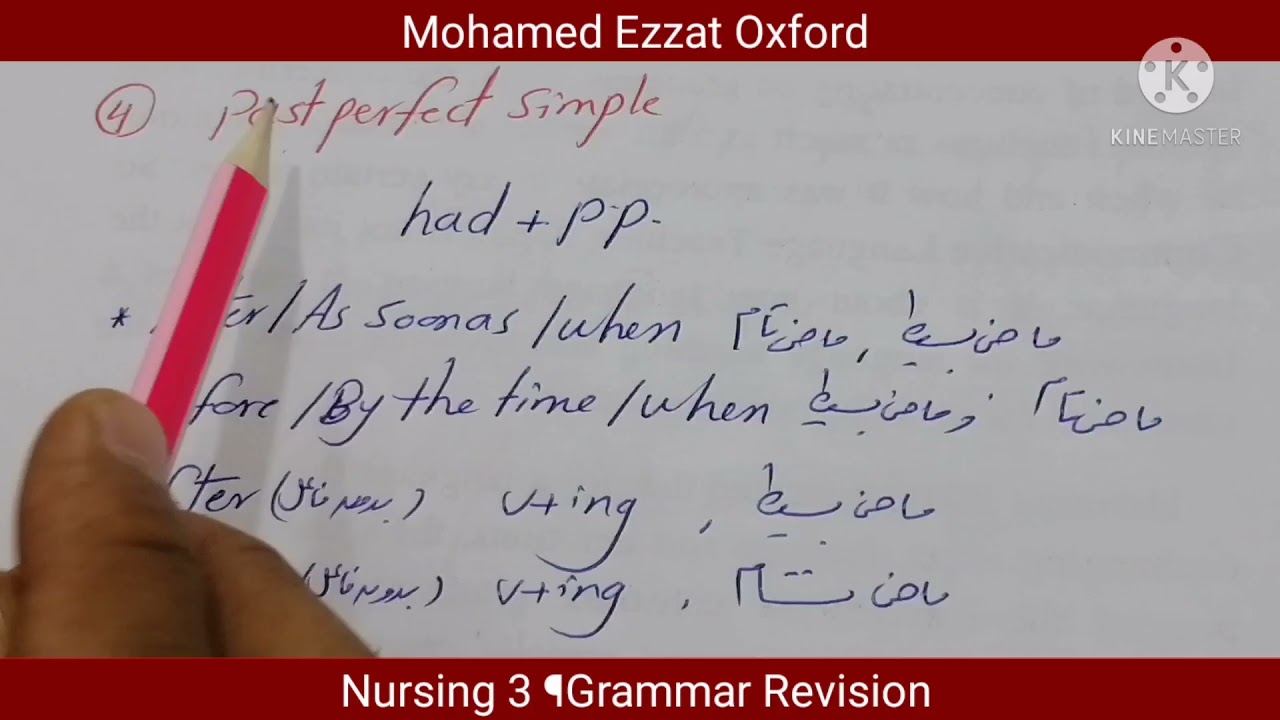 Mohamed Ezzat Oxford
K
KINEMASTER
④ Past perfect simple
had + p.p.
* ter / As soon as / when ماضى تام , ماضى بسيط
fore / By the time / when ماضى بسيط , ماضى تام
fter (بدون فاعل) v+ing , ماضى بسيط
(بدون فاعل) v+ing , ماضى تام
Nursing 3 ¶Grammar Revision